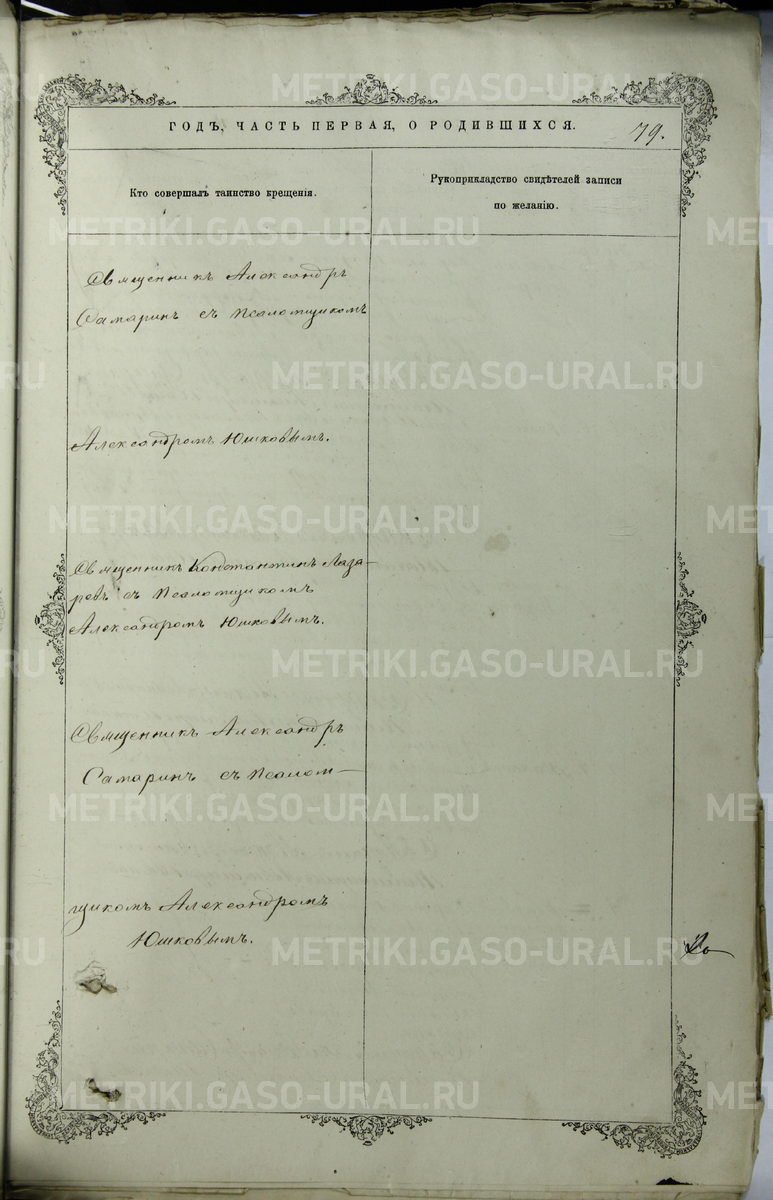 ГОДЪ, ЧАСТЬ ПЕРВАЯ, О РОДИВШИХСЯ. 79.
Кто совершалъ таинство крещенія.
Рукоприкладство свидѣтелей записи
по желанію.
Священникъ Александръ
Самаринъ съ псаломщикомъ
Александромъ Юшковымъ.
Священникъ Константинъ Лаза-
ревъ съ псаломщикомъ
Александромъ Юшковымъ.
Священникъ Александръ
Самаринъ съ псалом-
щикомъ Александромъ
Юшковымъ.
METRIKI.GASO-URAL.RU